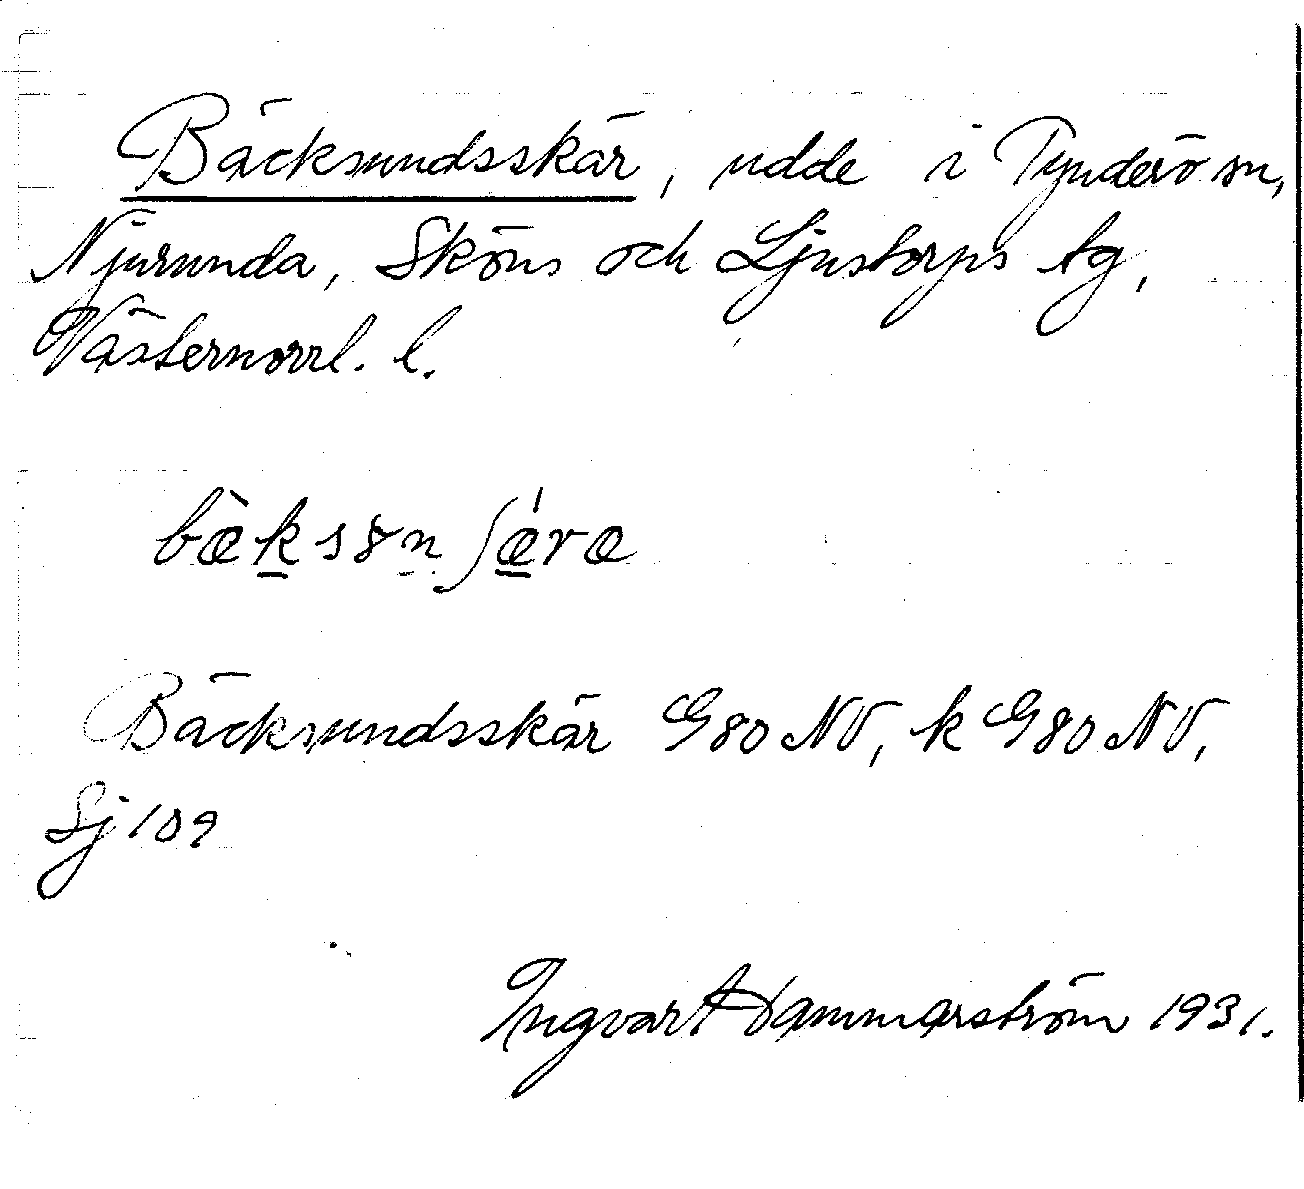 Bäcksundsskär, udde i Tynderö sn,
Njurunda, Sköns och Ljustorps tg,
Västernorrl. l.
bæ̀ksɵn ʃǽræ
Bäcksundsskär G80 NV, k G80 NV,
Sj 109
Ingvar Hammarström 1931.